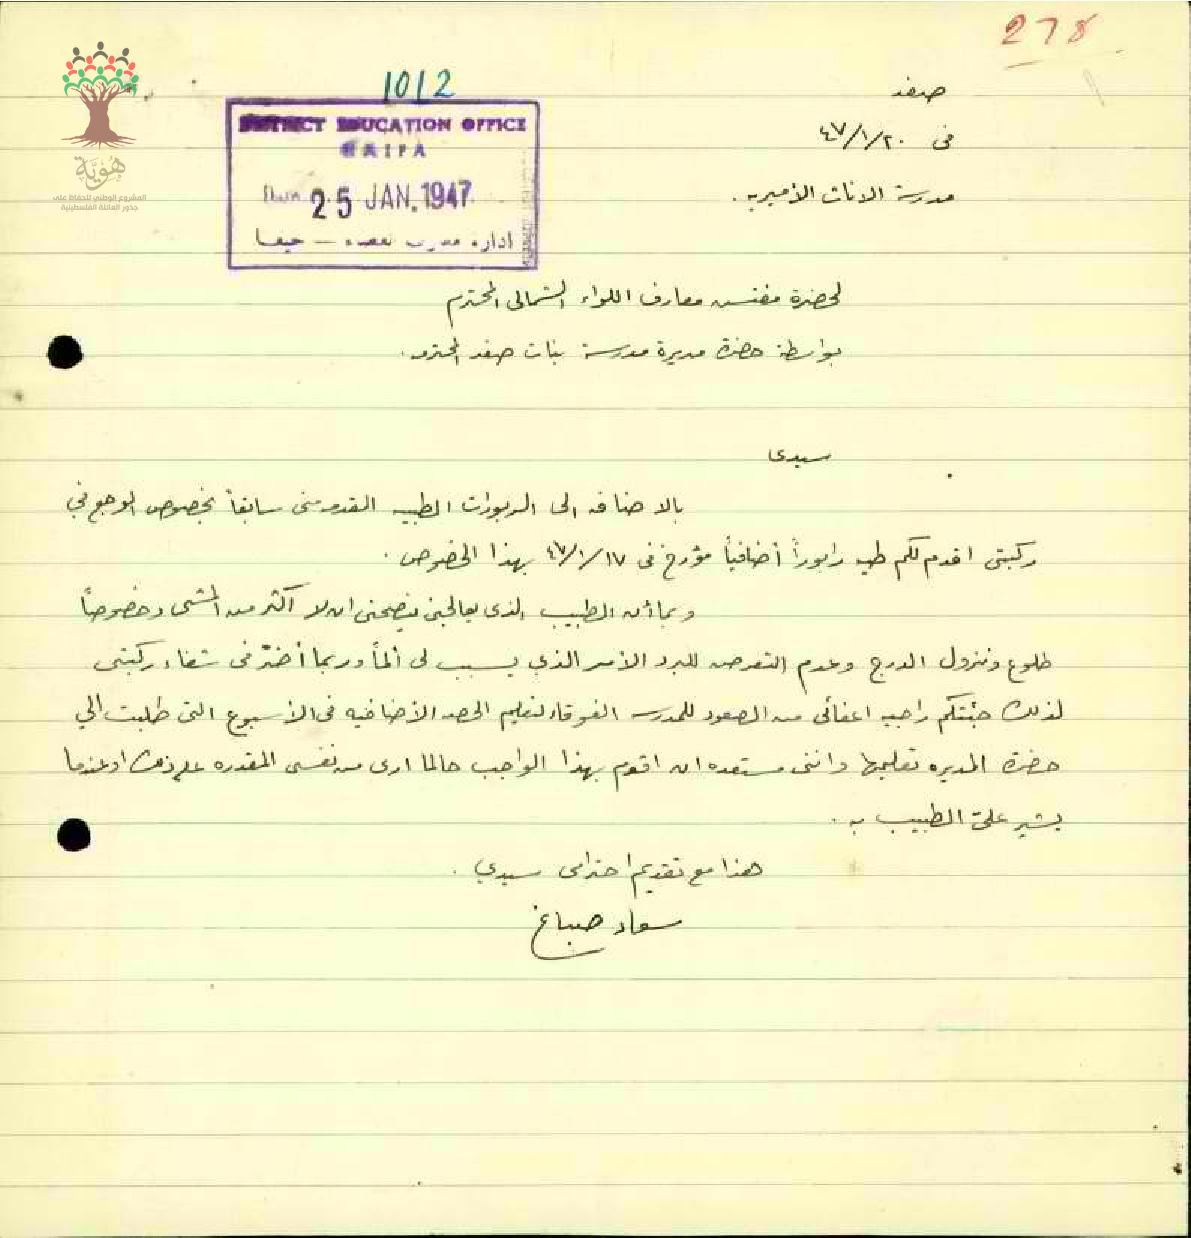 278
1012
DISTRICT EDUCATION OFFICE
HAIFA
Date 25 JAN. 1947
ادارة معارف حيفا
هُوِيَّة
المشروع الوطني للحفاظ على
جذور العائلة الفلسطينية
صفد
في ٢٠/١/٤٧
مدرسة الاناث الأميريه.
لحضرة مفتش معارف اللواء الشمالي المحترم
بواسطة حضرة مديرة مدرسة بنات صفد المحترمه.
سيدي
بالاضافه الى الربورات الطبيه المقدمه مني سابقاً بخصوص الوجع في
ركبتي اقدم لكم طيه رابوراً أضافياً مؤرخ في ١٧/١/٤٧ بهذا الخصوص.
وبما أن الطبيب الذي يعالجني ينصحني ان لا اكثر من المشي وخصوصاً
طلوع ونزول الدرج وعدم التعرض للبرد الأمر الذي يسبب لي ألماً وربما أضرّ في شفاء ركبتي
لذلك جئتكم راجيه اعفائي من الصعود للمدرسه الفوقاء لتعليم الحصص الأضافيه في الأسبوع التي طلبت الي
حضرة المديره تعليمها وانني مستعده ان اقوم بهذا الواجب حالما ارى من نفسي المقدره على ذلك او عندما
يشير عليّ الطبيب به.
هذا مع تقديم احترامي سيدي.
سعاد صباغ